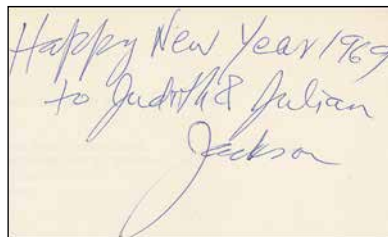 Happy New Year 1969
to Judith & Julian
Jackson